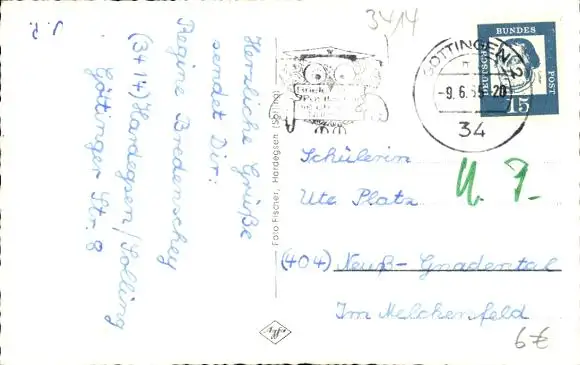 J. P.
3414
Herzliche Grüße
sendet Dir:
Regine Bredenschey
(3414) Hardegsen/Solling
Göttinger Str. 8
Foto Fischer, Hardegsen (Solling)
GÖTTINGEN 2
-9.6.65-20
34
DEUTSCHE
BUNDES
POST
15
Schülerin
Ute Platz
U. P.
(404) Neuß-Gnadental
Im Melchenfeld
6€